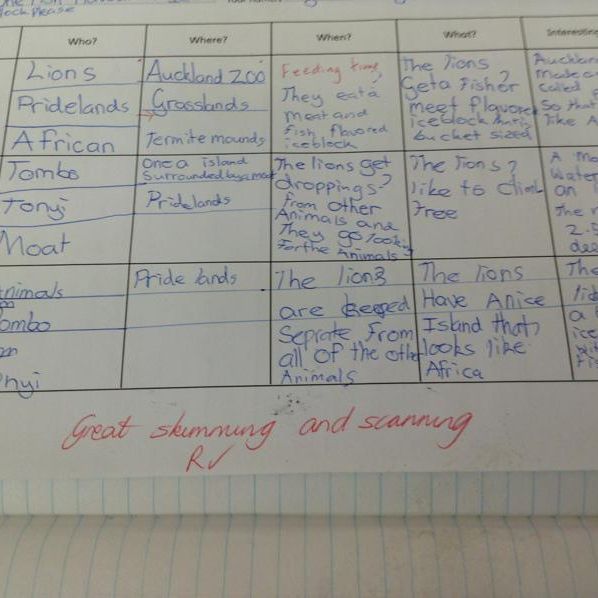 ock please
Who? Where? When? What? Interesting
Lions
Pridelands
African
Auckland Zoo
Grasslands
Termite mounds
Feeding time,
They eat a
meat and
fish flavored
iceblock
The lions?
Get a fisher
meet flavored
iceblock
bucket sized
Auckland
made
called
So that
like A
Tombo
Tonyi
Moat
once a island
surrounded by a moat
Pridelands
The lions get
droppings?
from other
Animals and
They go looking
for the Animals
The lions?
like to climb
Tree
A mo
Water
on
The m
2.5
dee
nimals
ombo
nyi
Pride lands
The lions
are keeped
Seprate from
all of the other
Animals
The lions
Have A nice
Island that?
looks like
Africa
The
a
ice
Great skimming and scanning
R✓